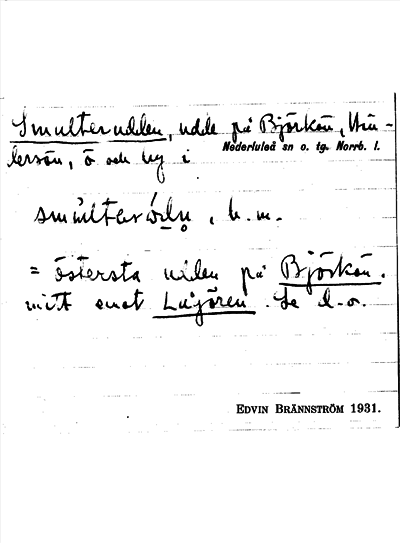 Smulterudden, udde på Björkön, Hin-
lersön, ö och by i Nederluleå sn o. tg. Norrb. l.
smúltərɷ́dn̥, b. m.
= östersta udden på Björkön.
mitt emot Lågören. Se d. o.
EDVIN BRÄNNSTRÖM 1931.